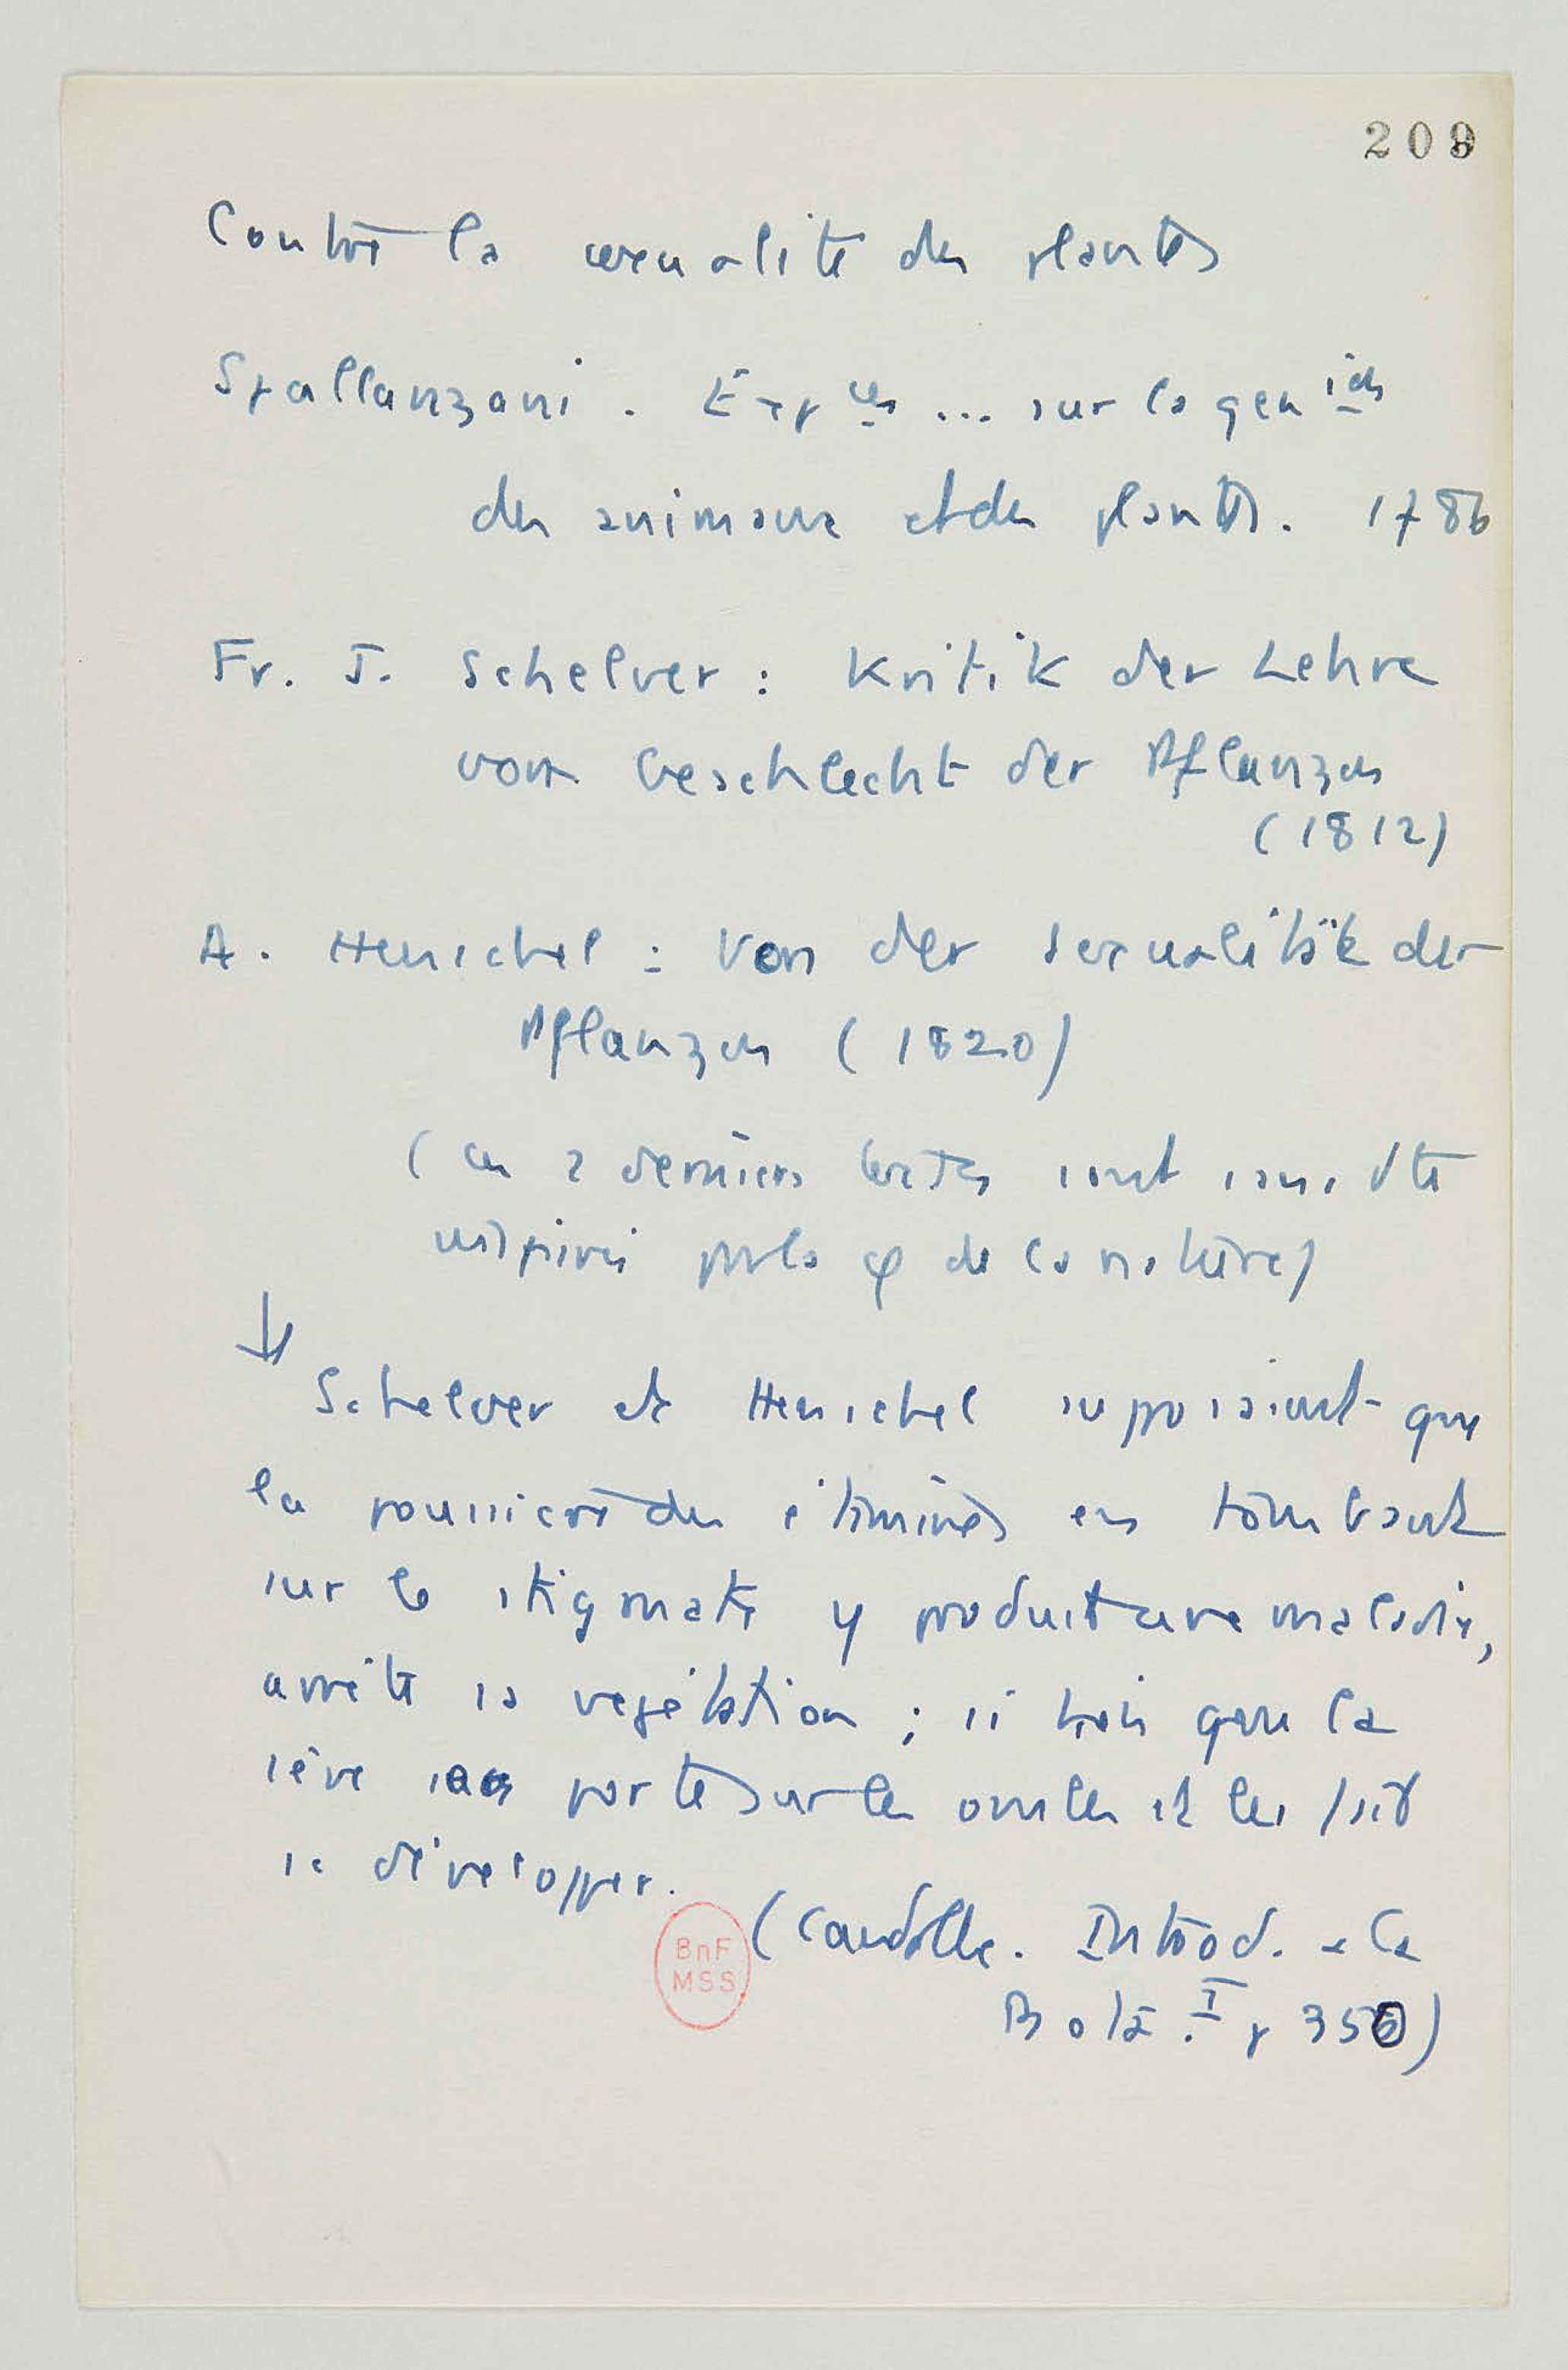 209
Contre la sexualité des plantes
Spallanzani. Exp ces ... sur la gen ion
des animaux et des plantes. 1786
Fr. J. Schelver : Kritik der Lehre
vom Geschlecht der Pflanzen
(1812)
A. Henschel : Von der Sexualität der
Pflanzen (1820)
(ces 2 derniers textes sont sans dte
inspirés par la φ de la nature)
↓
Schelver et Henschel supposaient que
la poussière des étamines en tombant
sur le stigmate y produit une maladie,
arrête sa végétation ; si bien que la
sève se porte sur les ovules et les fait
se développer.
(Candolle. Introd. à la
Bota. I p 350)
BnF
MSS